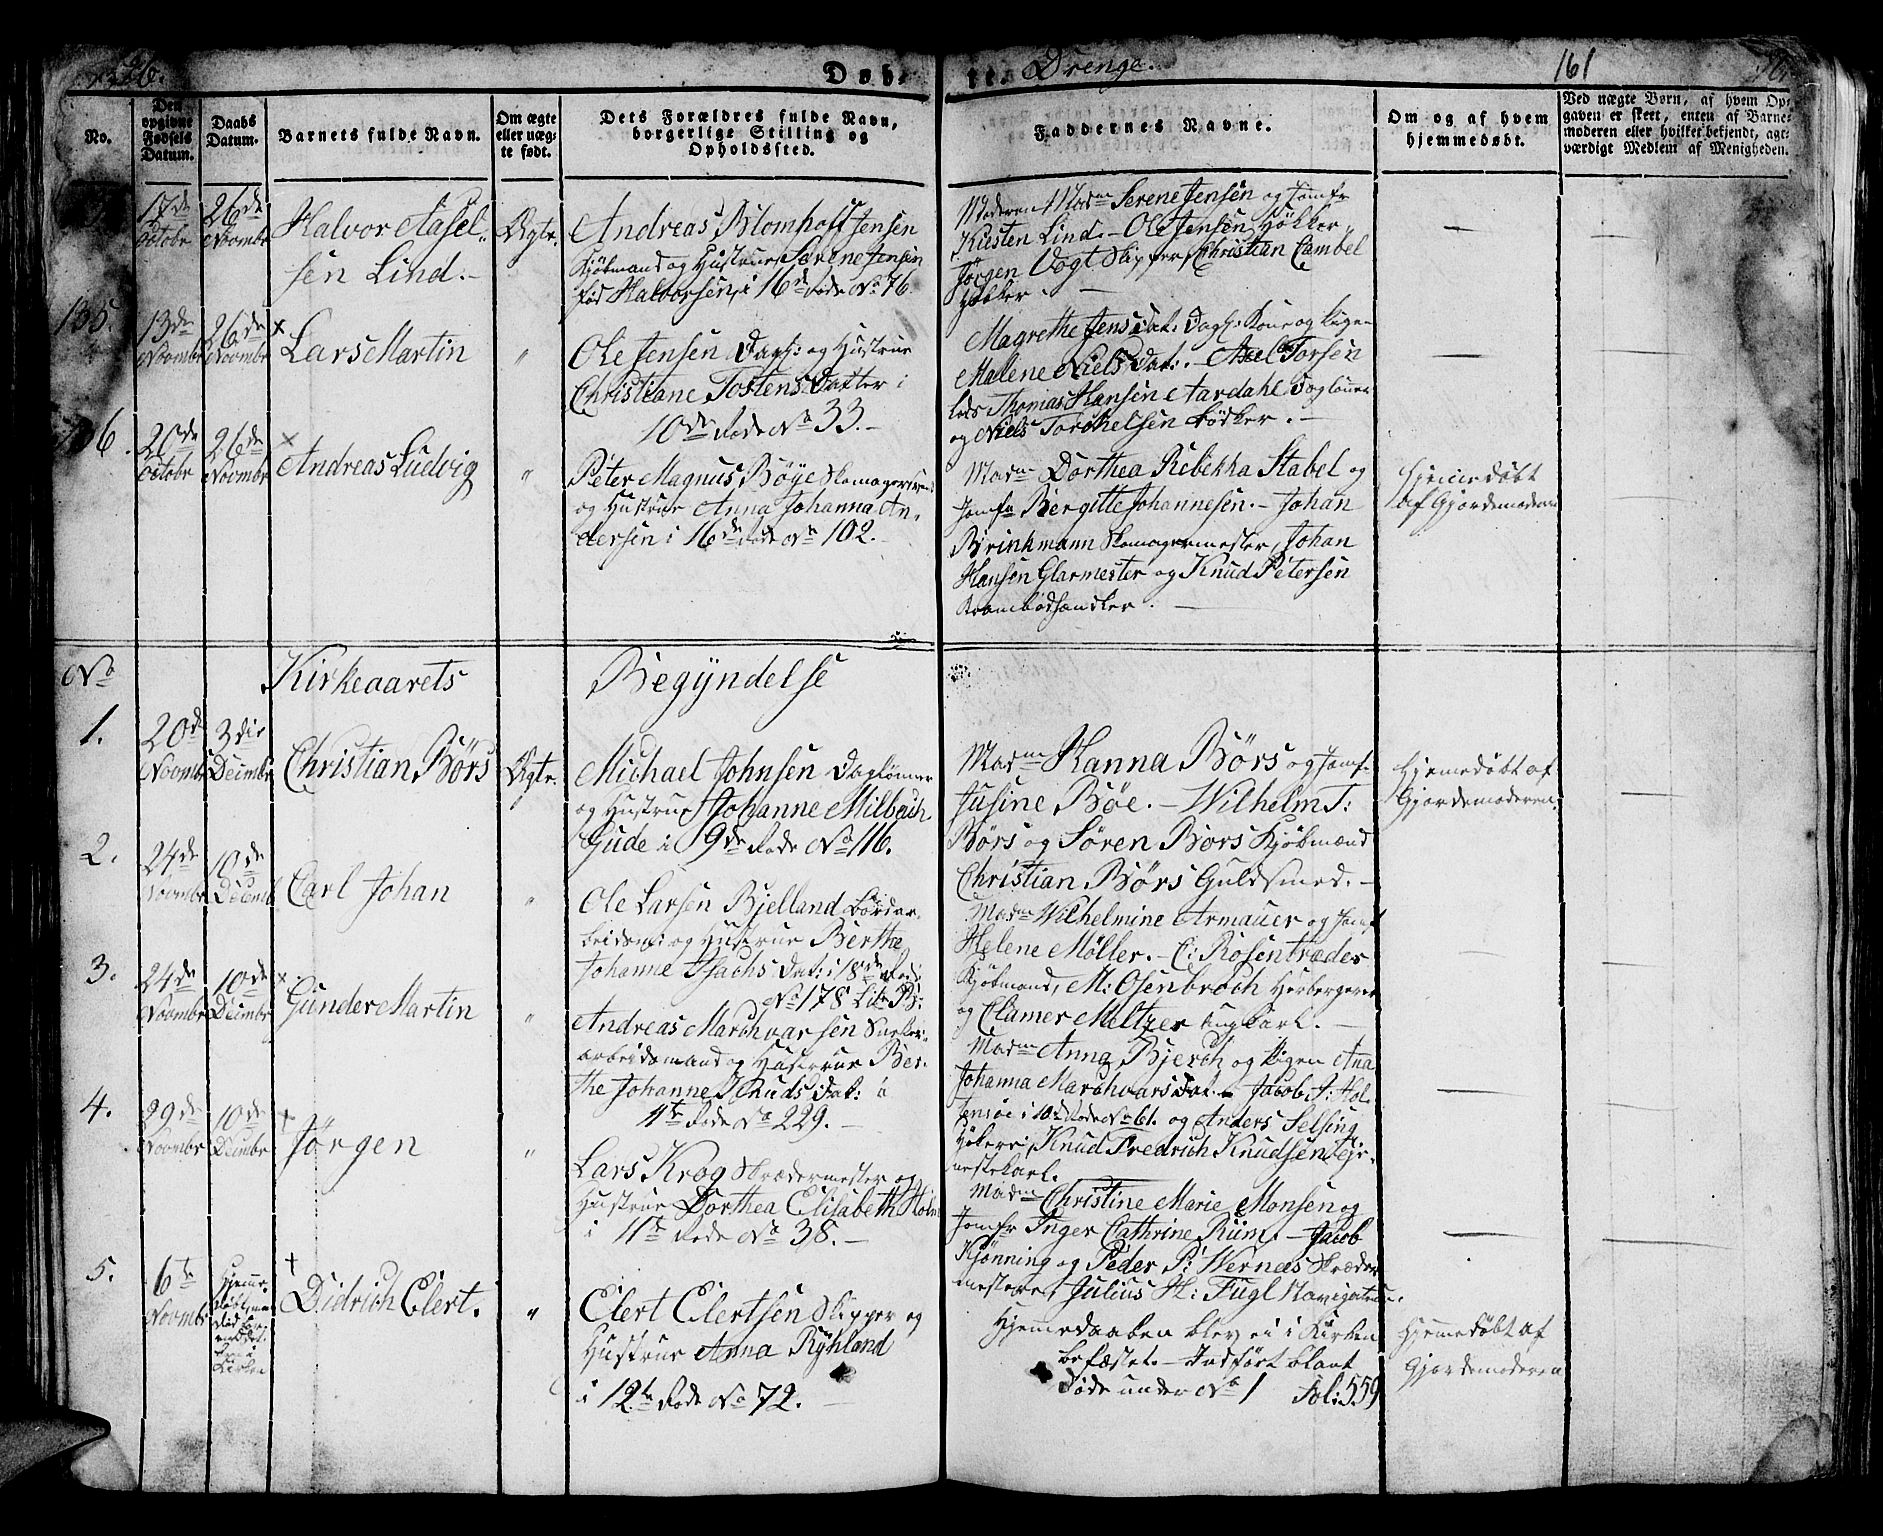 1826.
Døb- te. Drenge.
161
No.
Den opgivne Fødsels Datum.
Daabs Datum.
Barnets fulde Navn.
Om ægte eller uægte født.
Dets Forældres fulde Navn, borgerlige Stilling og Opholdssted.
Faddernes Navne.
Om og af hvem hjemmedøbt.
Ved uægte Børn, af hvem Opgaven er skeet, enten af Barnemoderen eller hvilket bekjendt, agtværdigt Medlem af Menigheden.
17de Octobr
26de Novmbr
Halvor Aasel-
sen Lind.
Ægte.
Andreas Blomhoff Jensen
Kjøbmand og Hustrue Serene Jensen
fød Halvorsen, i 16de Rode No 76.
Moderen Madm Serene Jensen og Jomfr
Kirsten Lind. Ole Jensen Høkker,
Jørgen Vogt Skipper, Christian Cambel
Høkker.
135.
13de Novmbr
26de Novmbr
× Lars Martin
"
Ole Jensen Dagl: og Hustrue
Christiane Tostens Datter i
10de Rode No 33.
Magrethe Jens Dat: Dagl: Kone og Pige
Malene Niels Dat: Axel Torsen
Lods Thomas Hansen Aardahl Daglønner
og Niels Torchelsen Bødker.
136.
20de Octobr
26de Novmbr
× Andreas Ludvig
"
Peter Magnus Bøye Skomagersvend
og Hustrue Anna Johanna An-
dersen i 16de Rode No 102.
Madm Dorthea Rebekka Stabel og
Jomfr Bergitte Johannesen. Johan
Brinkmann Skomagermester, Johan
Hansen Glarmester og Knud Petersen
Krambodhandler.
Hjemmedøbt
af Gjordemoderen
No Kirkeaarets Begyndelse
1.
20de Novmbr
3die Decmbr
Christian Børs
Ægte.
Michael Johnsen Daglønner
og Hustrue Johanne Milbach
Gude i 9de Rode No 116.
Madm Hanna Børs og Jomf.
Jusine Bøe. Wilhelm T:
Børs og Søren Børs Kjøbmænd
Christian Børs Guldsmed.
Hjemedøbt af
Gjordemoderen.
2.
24de Novmbr
10de Decmb
Carl Johan
"
Ole Larsen Bjelland Bordar-
beidsm: og Hustrue Berthe
Johanne Isachs Dat: i 18de Rode
No 178 Litr B:
Madm Wilhelmine Armauer og Jomf
Helene Møller. C: Rosentræder
Kjøbmand, M: Osenbroch Herbergerer
og Clamer Meltzer Ungkarl.
3.
24de Novmbr
10de Decmbr
× Gunder Martin
"
Andreas Marchvarsen
arbeidsmand og Hustrue Ber-
the Johanne Knuds Dat: i
11te Rode No 229.
Madm Anna Bjerch og Pigen Anna
Johanna Marchvars Dat. Jacob J: Hol-
i 10de Rode No 61. og Anders Selsing
Høkere, Knud Fredrich Knudsen Tje-
nestekarl.
4.
29de Novmbr
10de Decmbr
† Jørgen
"
Lars Krog Skrædermester og
Hustrue Dorthea Elisabeth Holm
i 11te Rode No 38.
Madm Christine Marie Monsen og
Jomfr Inger Cathrine Rüm. Jacob
Kjønning og Peder P: Wernes Skræder
mestere, Julius H: Fugl Navigateur.
5.
6te Novmbr
Hjemme-
døbt, men
død
Kirken
† Didrich Elert.
"
Elert Elertsen Skipper og
Hustrue Anna Ryhland
i 12te Rode No 72.
Hjemedaaben blev ei i Kirken
befæstet. Indført blant
Døde under No 1 Fol: 559
Hjemedøbt af
Gjordemoderen